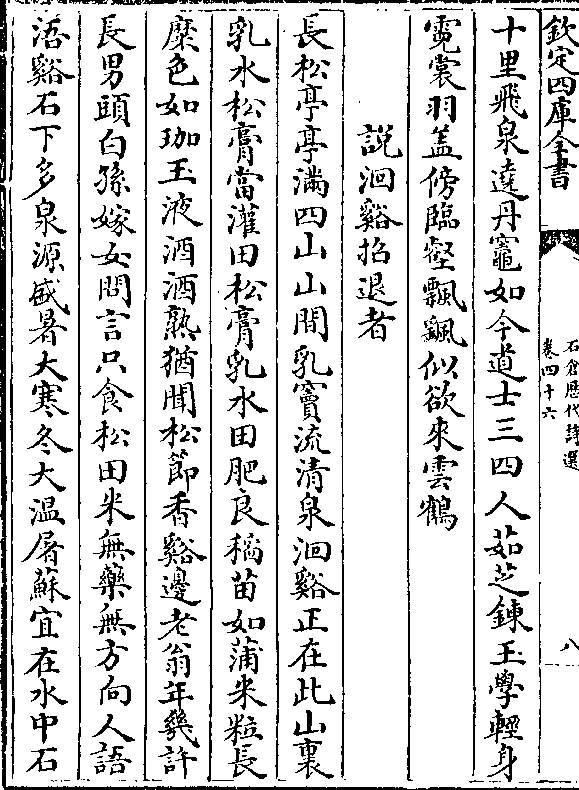 欽定四庫全書
石倉歷代詩選
卷四十六
八
十里飛泉遶丹竈如今道士三四人茹芝鍊玉學輕身
霓裳羽盖傍臨壑飄飄似欲來雲鶴
說洄谿招退者
長松亭亭滿四山山間乳竇流清泉洄谿正在此山裏
乳水松膏當灌田松膏乳水田肥良稻苗如蒲米粒長
糜色如珈玉液酒酒熟猶聞松節香谿邊老翁年幾許
長男頭白孫嫁女問言只食松田米無藥無方向人語
浯谿石下多泉源盛暑大寒冬大温屠蘇宜在水中石